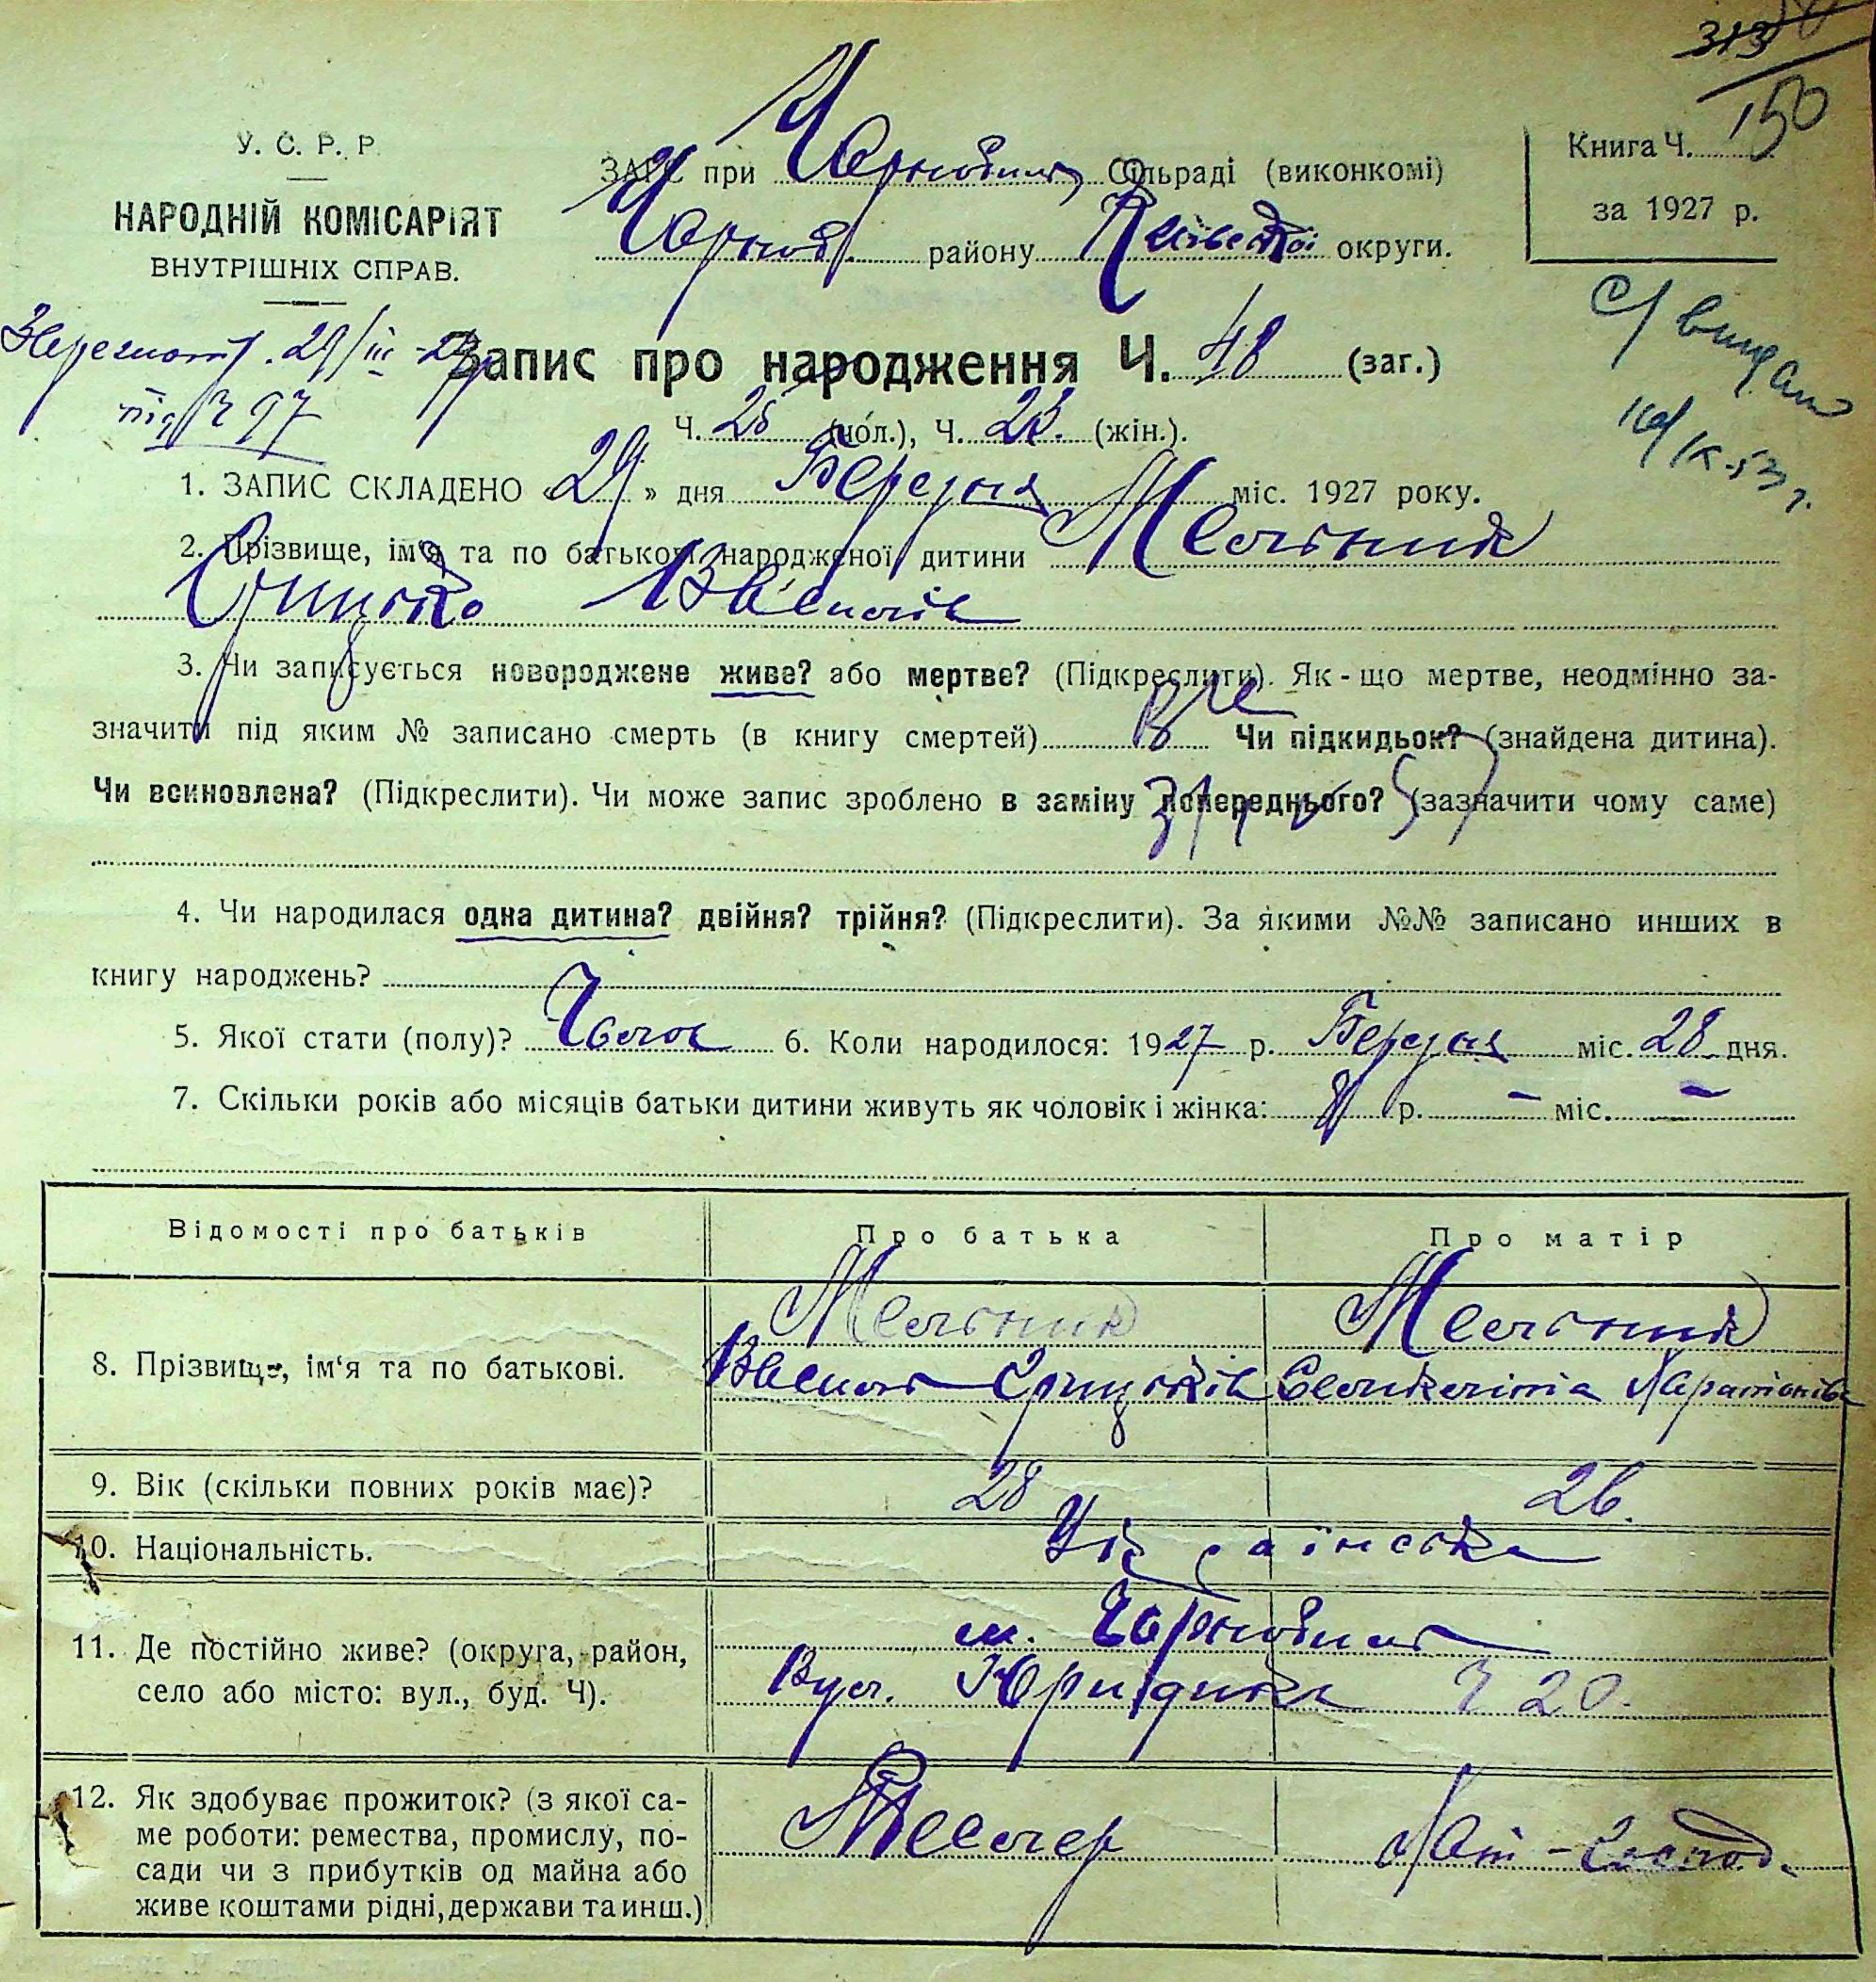 313
150
У. С. Р. Р.
НАРОДНІЙ КОМІСАРІЯТ
ВНУТРІШНІХ СПРАВ.
ЗАГС при Чорнобильск. Сільраді (виконкомі)
Чорноб. району Київської округи.
Книга Ч.
за 1927 р.
29/III-27
під Ч 97
Запис про народження Ч. 48 (заг.)
С/ видано
Ч. 25 (чол.), Ч. 23. (жін.).
1. ЗАПИС СКЛАДЕНО «29» дня Березня міс. 1927 року.
2. Прізвище, ім'я та по батькові народженої дитини Мельник
Грицько
3. Чи записується новороджене живе? або мертве? (Підкреслити). Як-що мертве, неодмінно за-
значити під яким № записано смерть (в книгу смертей) Чи підкидьок? (знайдена дитина).
Чи всиновлена? (Підкреслити). Чи може запис зроблено в заміну попереднього? (зазначити чому саме)
4. Чи народилася одна дитина? двійня? трійня? (Підкреслити). За якими №№ записано инших в
книгу народжень?
5. Якої стати (полу)? Чолов 6. Коли народилося: 1927 р. Березня міс. 28 дня.
7. Скільки років або місяців батьки дитини живуть як чоловік і жінка: 8 р. – міс. –
Відомості про батьків Про батька Про матір
8. Прізвище, ім'я та по батькові. Мельник Мельник
Грицьків Харитонівн
9. Вік (скільки повних років має)? 28 26.
10. Національність. Українська
11. Де постійно живе? (округа, район,
село або місто: вул., буд. Ч).
м. Чорнобиль
Вул. Юридика Ч 20.
12. Як здобуває прожиток? (з якої са-
ме роботи: ремества, промислу, по-
сади чи з прибутків од майна або
живе коштами рідні, держави та инш.)
Хат-господ.